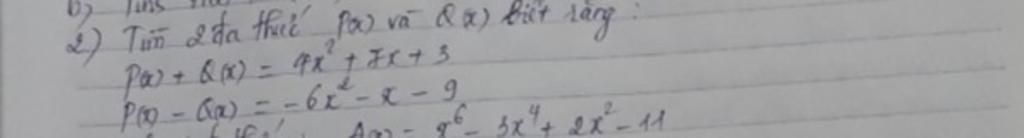 2) Tìm 2 đa thức P(x) và Q(x) biết rằng:
P(x) + Q(x) = 4x² + 7x + 3
P(x) - Q(x) = -6x² - x - 9
A(x) = x⁶ - 3x⁴ + 2x² - 11